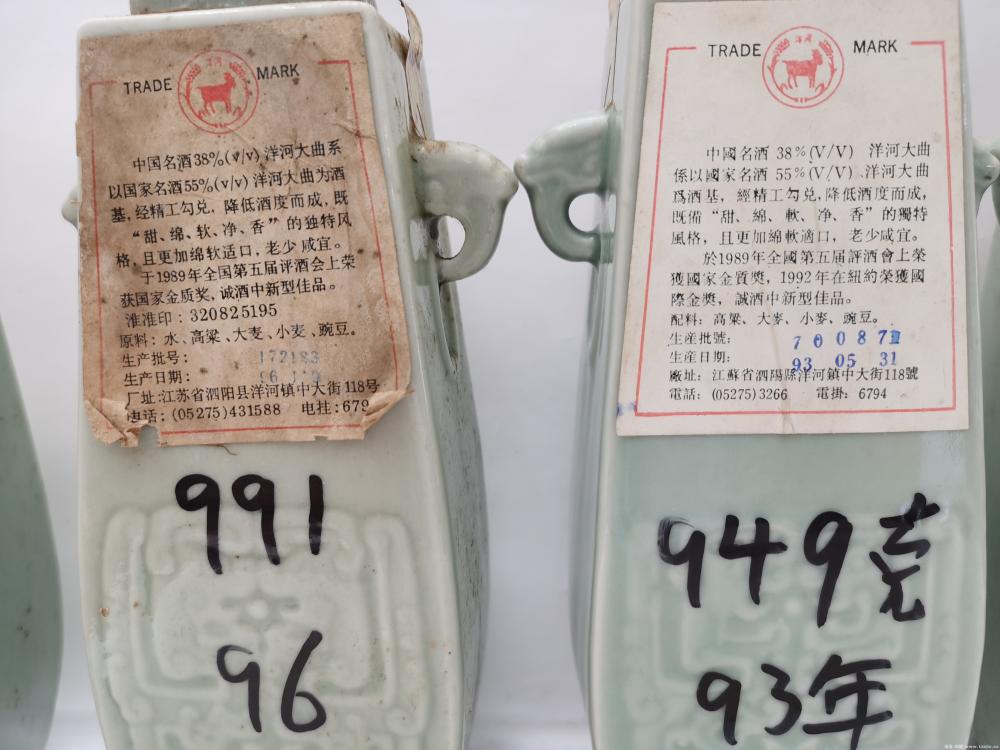 TRADE 洋河 MARK
中国名酒38%(v/v)洋河大曲系
以国家名酒55%(v/v)洋河大曲为酒
基，经精工勾兑，降低酒度而成，既
“甜、绵、软、净、香”的独特风
格，且更加绵软适口，老少咸宜。
于1989年全国第五届评酒会上荣
获国家金质奖，诚酒中新型佳品。
淮准印：320825195
原料：水、高粱、大麦、小麦、豌豆。
生产批号：
生产日期：96
厂址：江苏省泗阳县洋河镇中大街118号
电话：(05275)431588 电挂：679
991
96
TRADE 洋河 MARK
中國名酒 38%(V/V) 洋河大曲
係以國家名酒 55%(V/V) 洋河大曲
爲酒基，經精工勾兑，降低酒度而成，
既備“甜、綿、軟、净、香”的獨特
風格，且更加綿軟適口，老少咸宜。
於1989年全國第五届評酒會上榮
獲國家金質獎，1992年在紐約荣獲國
際金獎，誠酒中新型佳品。
配料：高粱、大麥、小麥、豌豆。
生産批號：70087
生産日期：93 05 31
廠址：江蘇省泗陽縣洋河鎮中大街118號
電話：(05275)3266 電掛：6794
949克
93年